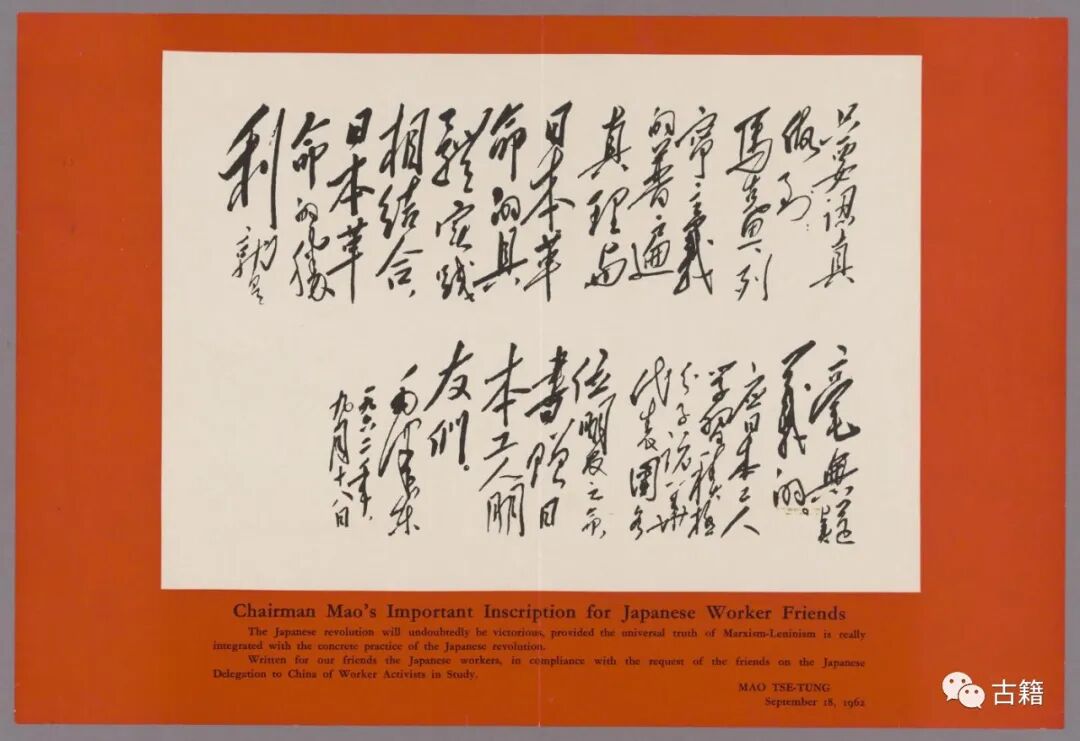 只要認真
做到
馬克思列
寧主義
的普遍
真理与
日本革
命的具
體实践
相結合
日本革
命的勝
利就是
毫無疑
義的。
应日本工人
學習積極
分子訪華
代表團各
位朋友之命
書贈日
本工人朋
友們。
毛澤東
一九六二年
九月十八日
Chairman Mao's Important Inscription for Japanese Worker Friends
The Japanese revolution will undoubtedly be victorious, provided the universal truth of Marxism-Leninism is really
integrated with the concrete practice of the Japanese revolution.
Written for our friends the Japanese workers, in compliance with the request of the friends on the Japanese
Delegation to China of Worker Activists in Study.
MAO TSE-TUNG
September 18, 1962
古籍